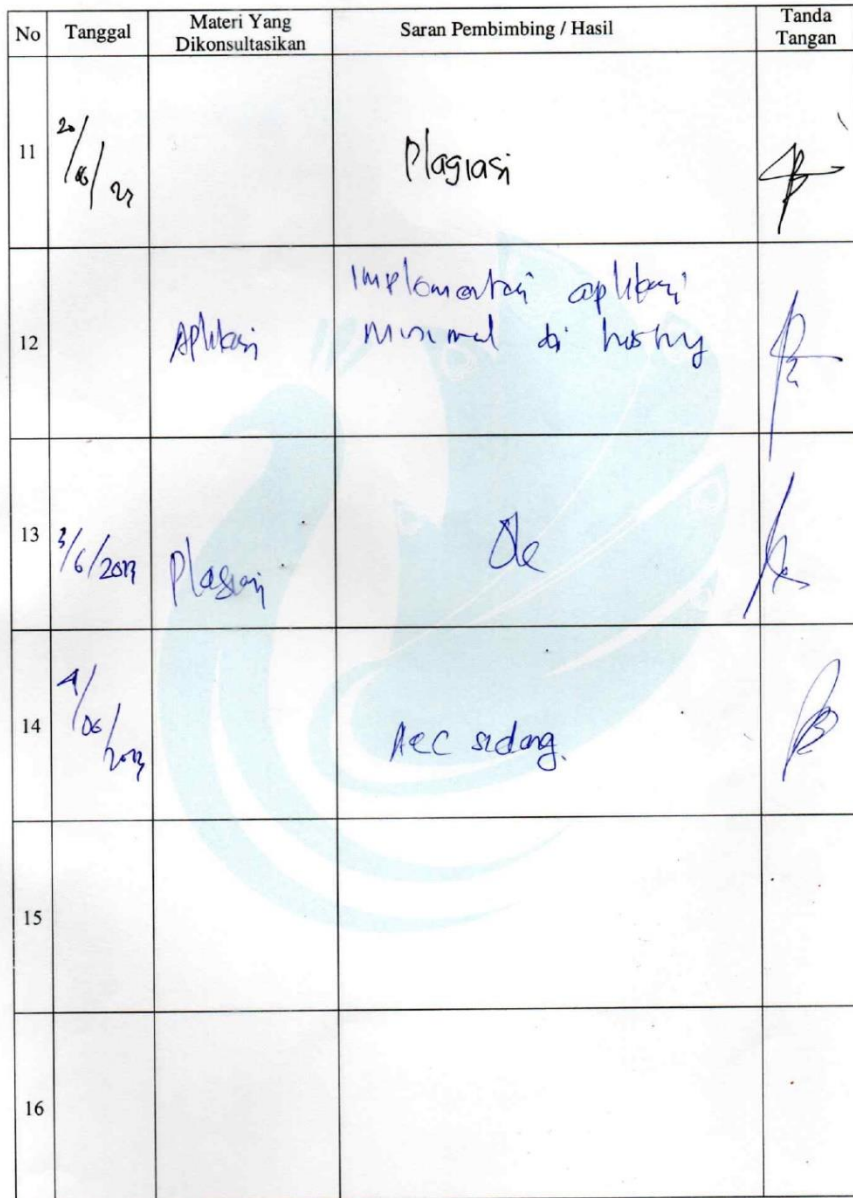 No Tanggal Materi Yang Dikonsultasikan Saran Pembimbing / Hasil Tanda Tangan
11 Plagiasi
12 Aplikasi Implementasi aplikasi
minimal di hosting
13 Plagiasi Ok
14 Acc sidang.
15
16